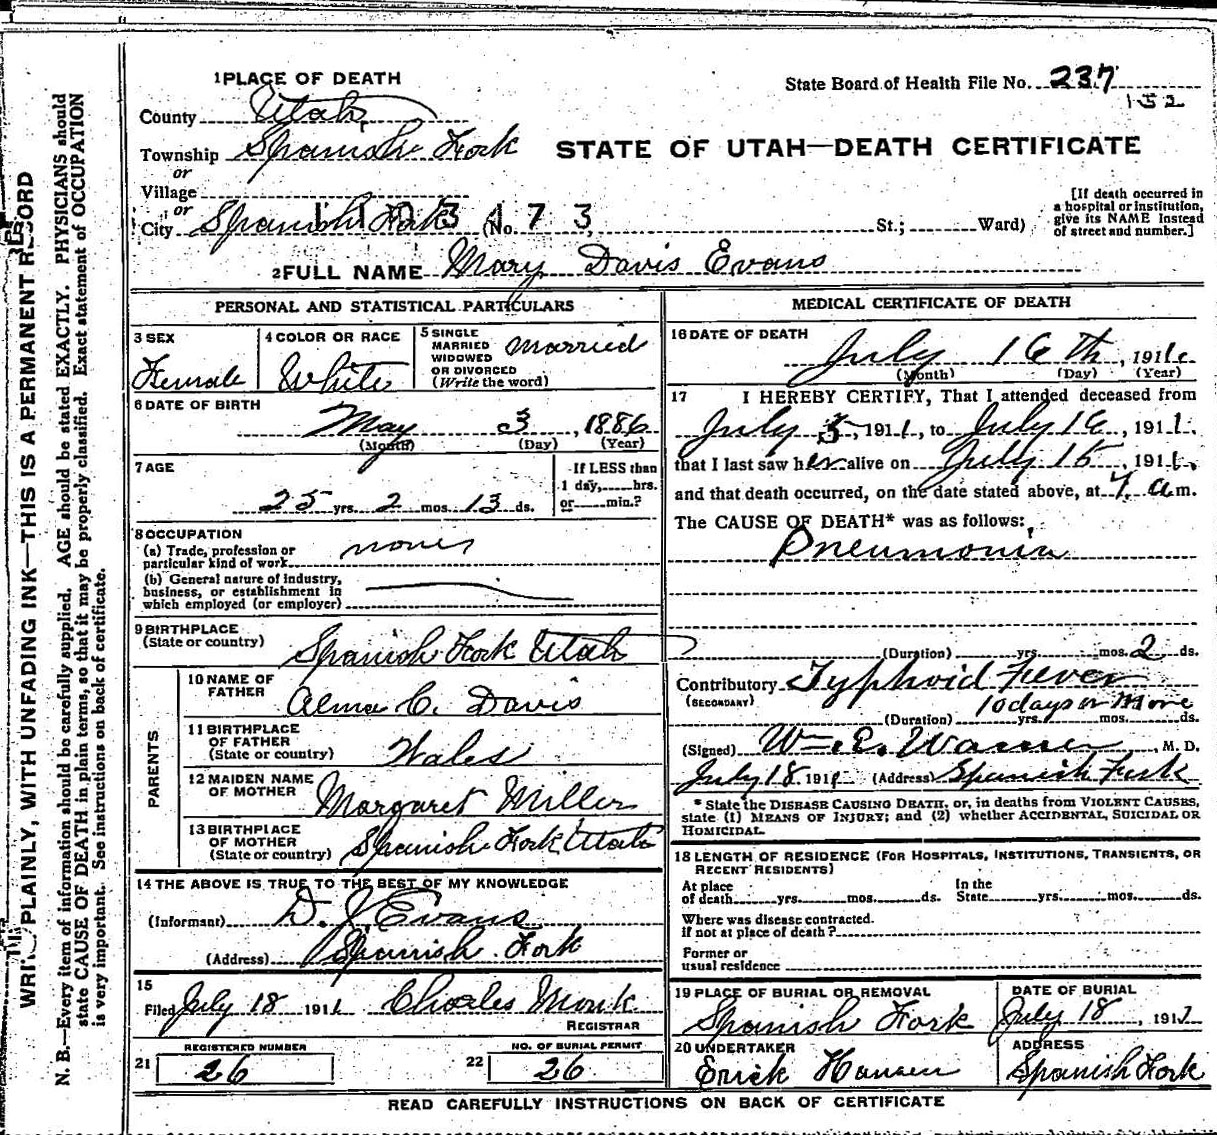 1 PLACE OF DEATH
State Board of Health File No. 237
132
County Utah
Township Spanish Fork
or
Village
or
City Spanish Fork (No. St.; Ward)
1103173
STATE OF UTAH—DEATH CERTIFICATE
[If death occurred in
a hospital or institution,
give its NAME instead
of street and number.]
2 FULL NAME Mary Davis Evans
PERSONAL AND STATISTICAL PARTICULARS
3 SEX
Female
4 COLOR OR RACE
White
5 SINGLE
MARRIED
WIDOWED
OR DIVORCED
(Write the word)
Married
6 DATE OF BIRTH
May 3, 1886
(Month) (Day) (Year)
7 AGE
25 yrs. 2 mos. 13 ds.
If LESS than
1 day, hrs.
or min.?
8 OCCUPATION
(a) Trade, profession or
particular kind of work
(b) General nature of industry,
business, or establishment in
which employed (or employer)
9 BIRTHPLACE
(State or country)
Spanish Fork Utah
PARENTS
10 NAME OF
FATHER
Alma C. Davis
11 BIRTHPLACE
OF FATHER
(State or country)
Wales
12 MAIDEN NAME
OF MOTHER
Margaret Miller
13 BIRTHPLACE
OF MOTHER
(State or country)
Spanish Fork Utah
14 THE ABOVE IS TRUE TO THE BEST OF MY KNOWLEDGE
(Informant) D. J. Evans
(Address) Spanish Fork
15
Filed July 18 1911 Charles Monk
REGISTRAR
21 REGISTERED NUMBER
26
22 NO. OF BURIAL PERMIT
26
MEDICAL CERTIFICATE OF DEATH
16 DATE OF DEATH
July 16th, 1911
(Month) (Day) (Year)
17 I HEREBY CERTIFY, That I attended deceased from
July 1911, to July 16, 1911,
that I last saw her alive on July 15, 1911,
and that death occurred, on the date stated above, at a m.
The CAUSE OF DEATH* was as follows:
Pneumonia
(Duration) yrs. mos. 2 ds.
Contributory Typhoid Fever
(SECONDARY)
10 days or more
(Duration) yrs. mos. ds.
(Signed) Wm E. Warner, M. D.
July 18 1911 (Address) Spanish Fork
* State the DISEASE CAUSING DEATH, or, in deaths from VIOLENT CAUSES,
state (1) MEANS OF INJURY; and (2) whether ACCIDENTAL, SUICIDAL OR
HOMICIDAL.
18 LENGTH OF RESIDENCE (FOR HOSPITALS, INSTITUTIONS, TRANSIENTS, OR
RECENT RESIDENTS)
At place
of death yrs. mos. ds.
In the
State yrs. mos. ds.
Where was disease contracted.
if not at place of death?
Former or
usual residence
19 PLACE OF BURIAL OR REMOVAL
Spanish Fork
DATE OF BURIAL
July 18, 1911
20 UNDERTAKER
Erick Hansen
ADDRESS
Spanish Fork
READ CAREFULLY INSTRUCTIONS ON BACK OF CERTIFICATE
PLAINLY, WITH UNFADING INK—THIS IS A PERMANENT RECORD
N. B.—Every item of information should be carefully supplied. AGE should be stated EXACTLY. PHYSICIANS should
state CAUSE OF DEATH in plain terms, so that it may be properly classified. Exact statement of OCCUPATION
is very important. See instructions on back of certificate.